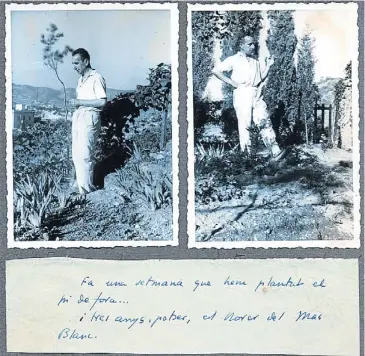 Fa una setmana que hem plantat el
pi de fora...
i tres anys, potser, el llorer del Mas
Blanc.